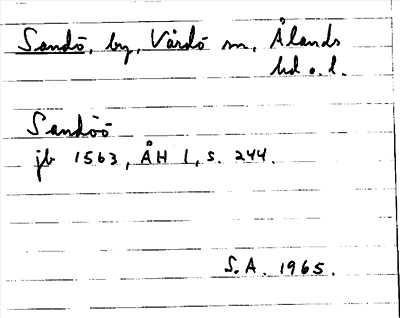 Sandö, by, Vårdö sn, Ålands
hd o. l.
Sandöö
jb 1563, ÅH 1, s. 244.
S.A. 1965.